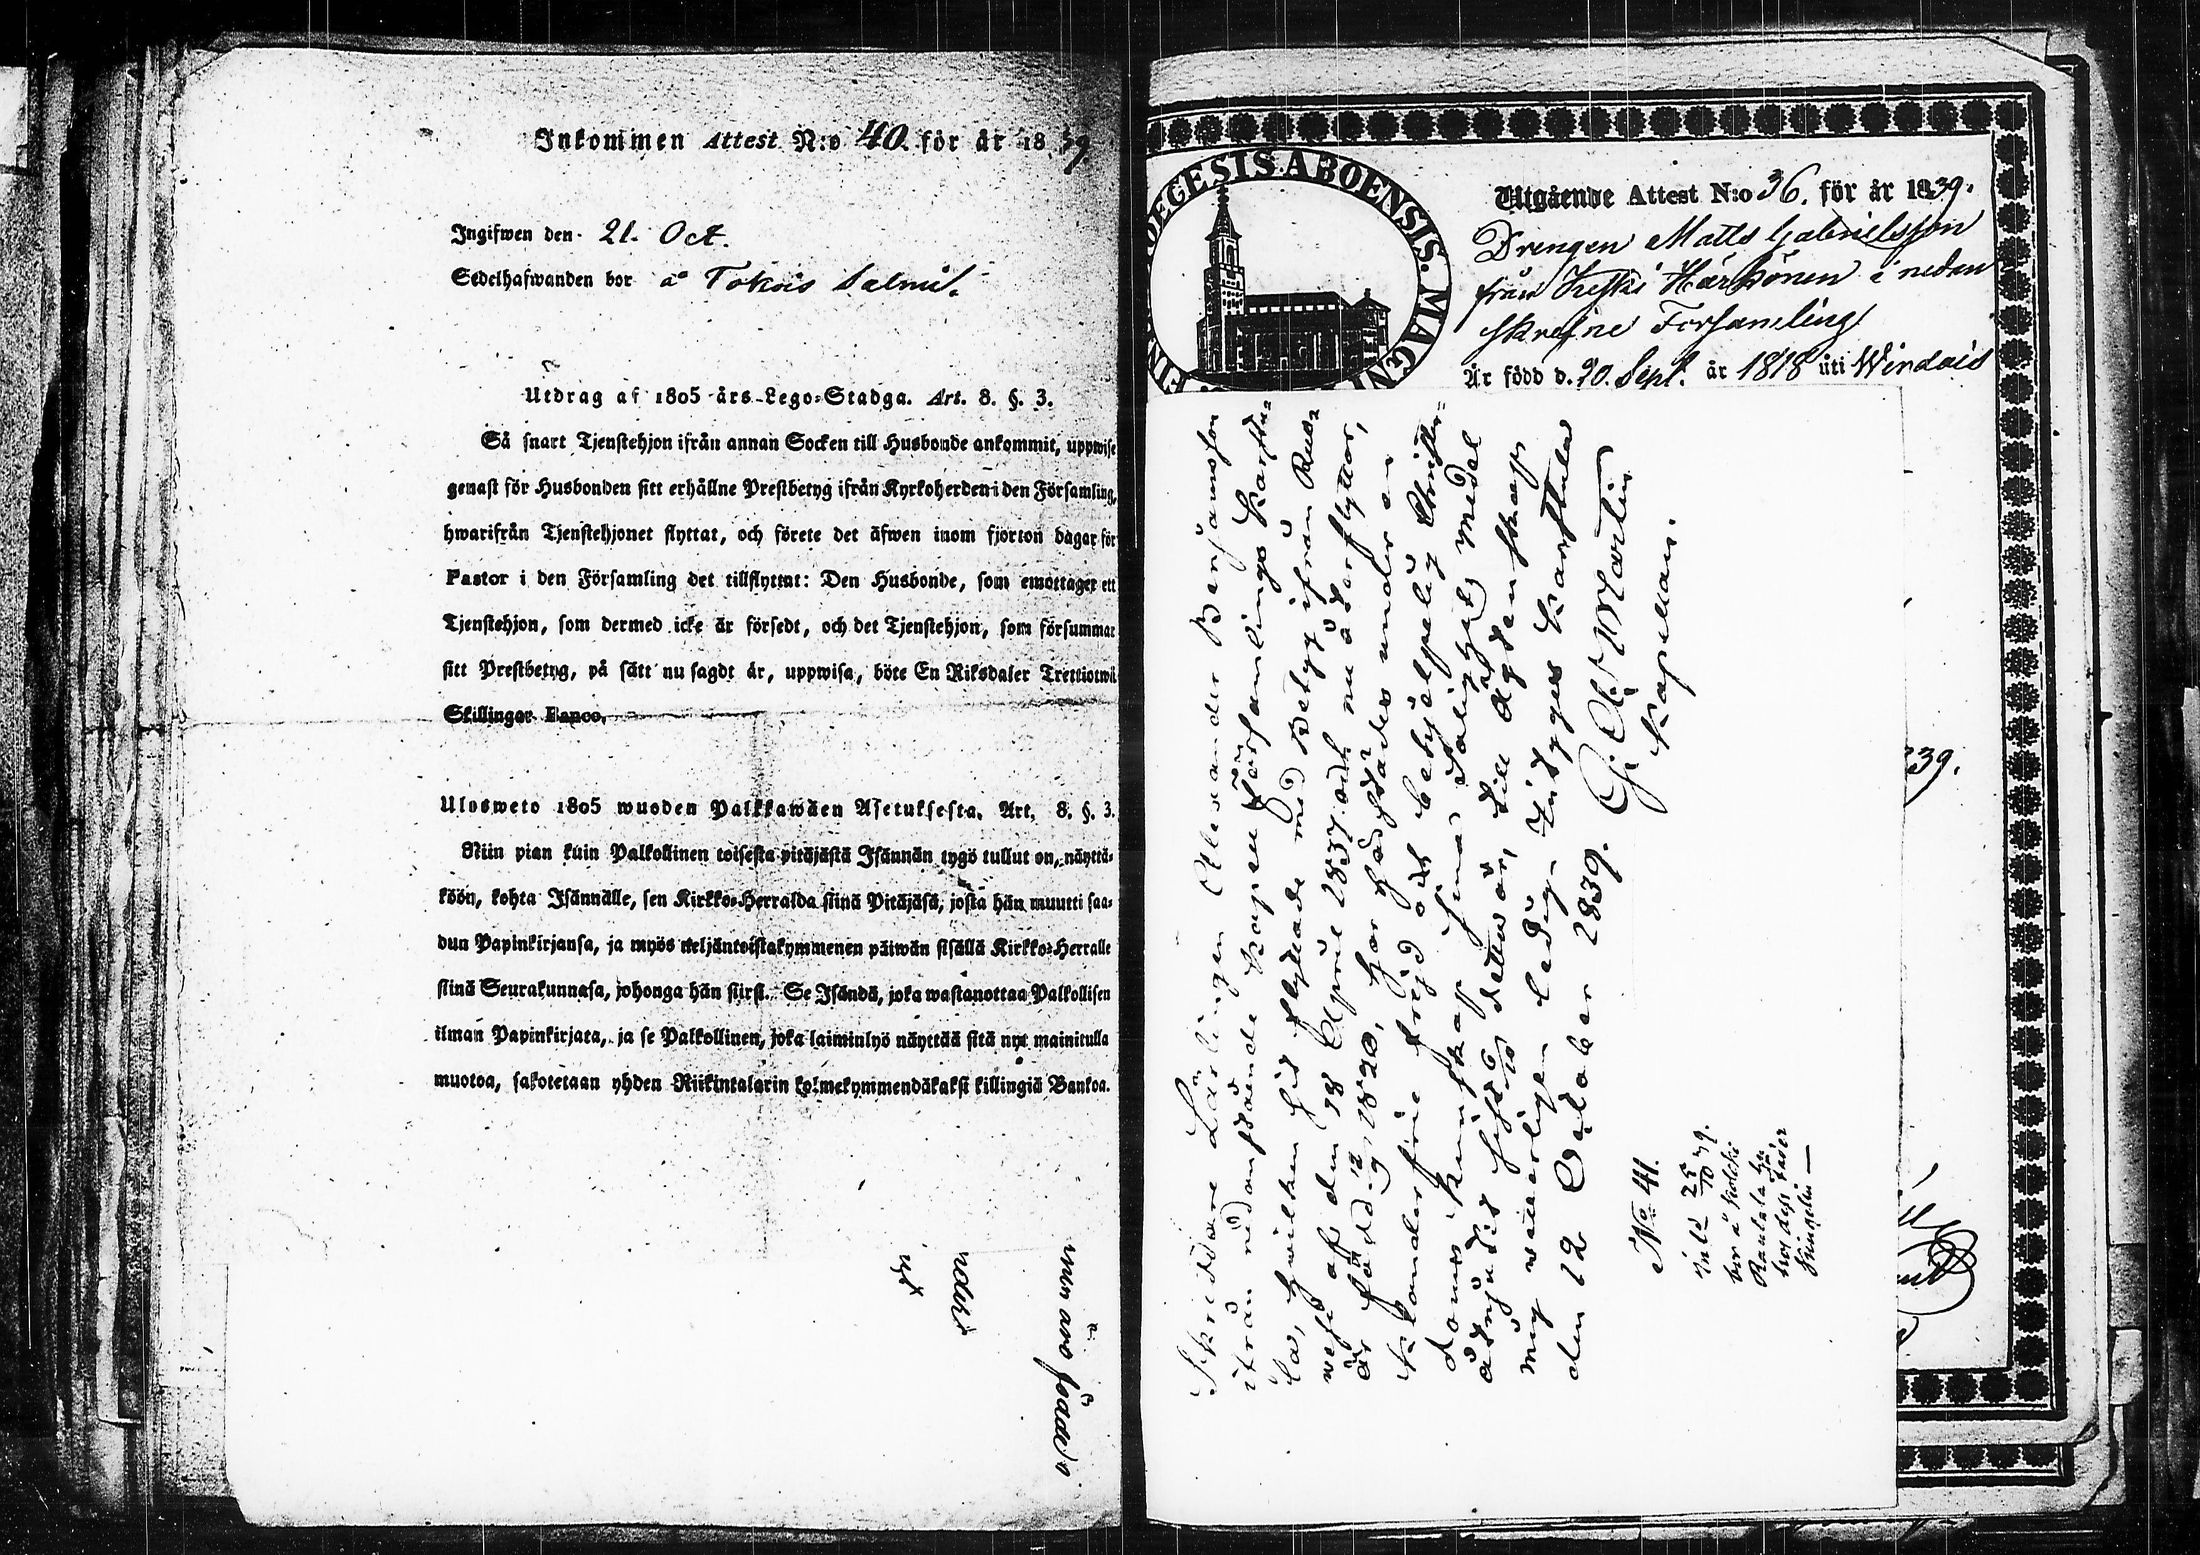 Inkommen Attest N:o 40. för år 1839
Ingifwen den 21. Oct.
Sedelhafwanden bor å Tokois Salmis.
Utdrag af 1805 års Lego-Stadga. Art. 8. §. 3.
Så snart Tjenstehjon ifrån annan Socken till Husbonde ankommit, uppwise
genast för Husbonden sitt erhållne Prestbetyg ifrån Kyrkoherden i den Församling,
hwarifrån Tjenstehjonet flyttat, och förete det äfwen inom fjorton dagar för
Pastor i den Församling det tillflyttat: Den Husbonde, som emottager ett
Tjenstehjon, som dermed icke är försedt, och det Tjenstehjon, som försummar
sitt Prestbetyg, på sätt nu sagdt är, uppwisa, böte En Riksdaler Trettiotwå
Skillingar Banco.
Ulosweto 1805 wuoden Palkkawäen Asetuksesta. Art. 8. §. 3.
Niin pian kuin Palkollinen toisesta pitäjästä Isännän tygö tullut on, näyttä-
köön, kohta Isännälle, sen Kirkko-Herralda siinä Pitäjäsä, josta hän muutti saa-
dun Papinkirjansa, ja myös neljäntoistakymmenen päiwän sisällä Kirkko-Herralle
siinä Seurakunnasa, johonga hän siirsi. Se Isändä, joka wastanottaa Palkollisen
ilman Papinkirjata, ja se Palkollinen, joka laiminlyö näyttää sitä nyt mainitulla
muotoa, sakotetaan yhden Riikintalarin kolmekymmendäkaksi killingiä Bankoa.
DEGESIS.ABOENSIS.MAGNI
Utgående Attest N:o 36. för år 1839.
Drengen Matts Gabrielsson
från Keski Härkönen i nedan
skrefne Forsamling
Är född d. 20. Sept. år 1818 uti Wirdois
Skreddare Lärlingen Alexander Benjamsson
ifrån nedanstående Kapell Församlings Karstu-
la, hwilken hit flyttade med Betyg ifrån Ruo-
wesi af den 18 April 1837 och nu åter flyttar,
är född d 12/9 1820, har härstädes under en
klanderfri frejd och behjelpelig Christen-
doms kunskap sina Salighets medel
åtnjutit sist detta år, till Ägtenskap
mig weterligen ledig. Intygas Karstula
den 12 October 1839.
Kapellan.
No 41.
Inl d 25/10 39.
339.